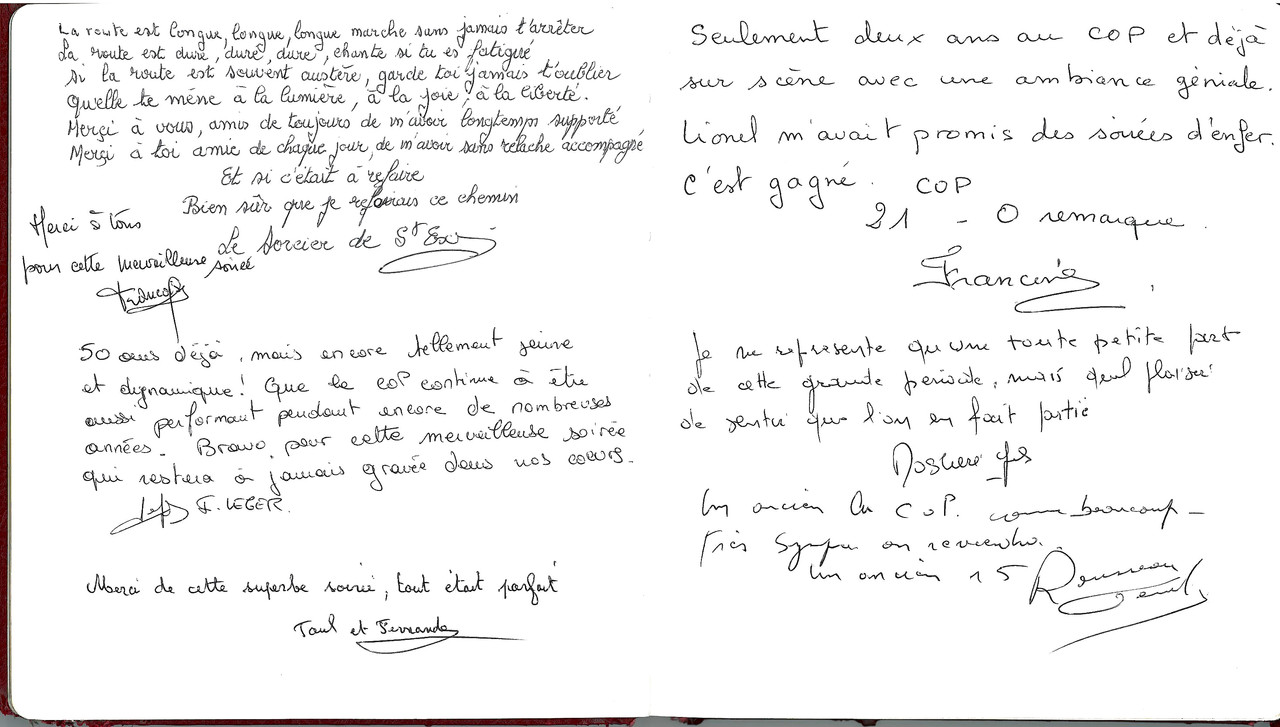 La route est longue, longue, longue marche sans jamais t'arrêter
La route est dure, dure, dure, chante si tu es fatigué
si la route est souvent austère, garde toi jamais t'oublier
Qu'elle te mène à la lumière, à la joie, à la liberté.
Merçi à vous, amis de toujours de m'avoir longtemps supporté
Merçi à toi amie de chaque jour, de m'avoir sans relache accompagné
Et si c'était à refaire
Bien sûr que je referais ce chemin
Le Sorcier de St Ex
Merci à tous
pour cette merveilleuse soirée
50 ans déjà, mais encore tellement jeune
et dygnamique! Que le COP continue à être
aussi performant pendant encore de nombreuses
années. Bravo pour cette merveilleuse soirée
qui restera à jamais gravée dans nos coeurs.
F. LEGER.
Merci de cette superbe soirée, tout était parfait
Paul et Fernande
Seulement deux ans au COP et déjà
sur scène avec une ambiance géniale.
Lionel m'avait promis des soirées d'enfer.
C'est gagné. COP
21 - 0 remarque.
Francine
Je ne représente qu'une toute petite part
de cette grande période, mais quel plaisir
de sentir que l'on en fait partie
Un ancien du COP. comme beaucoup -
Très sympa on reviendra.
Un ancien 15 Rousseau